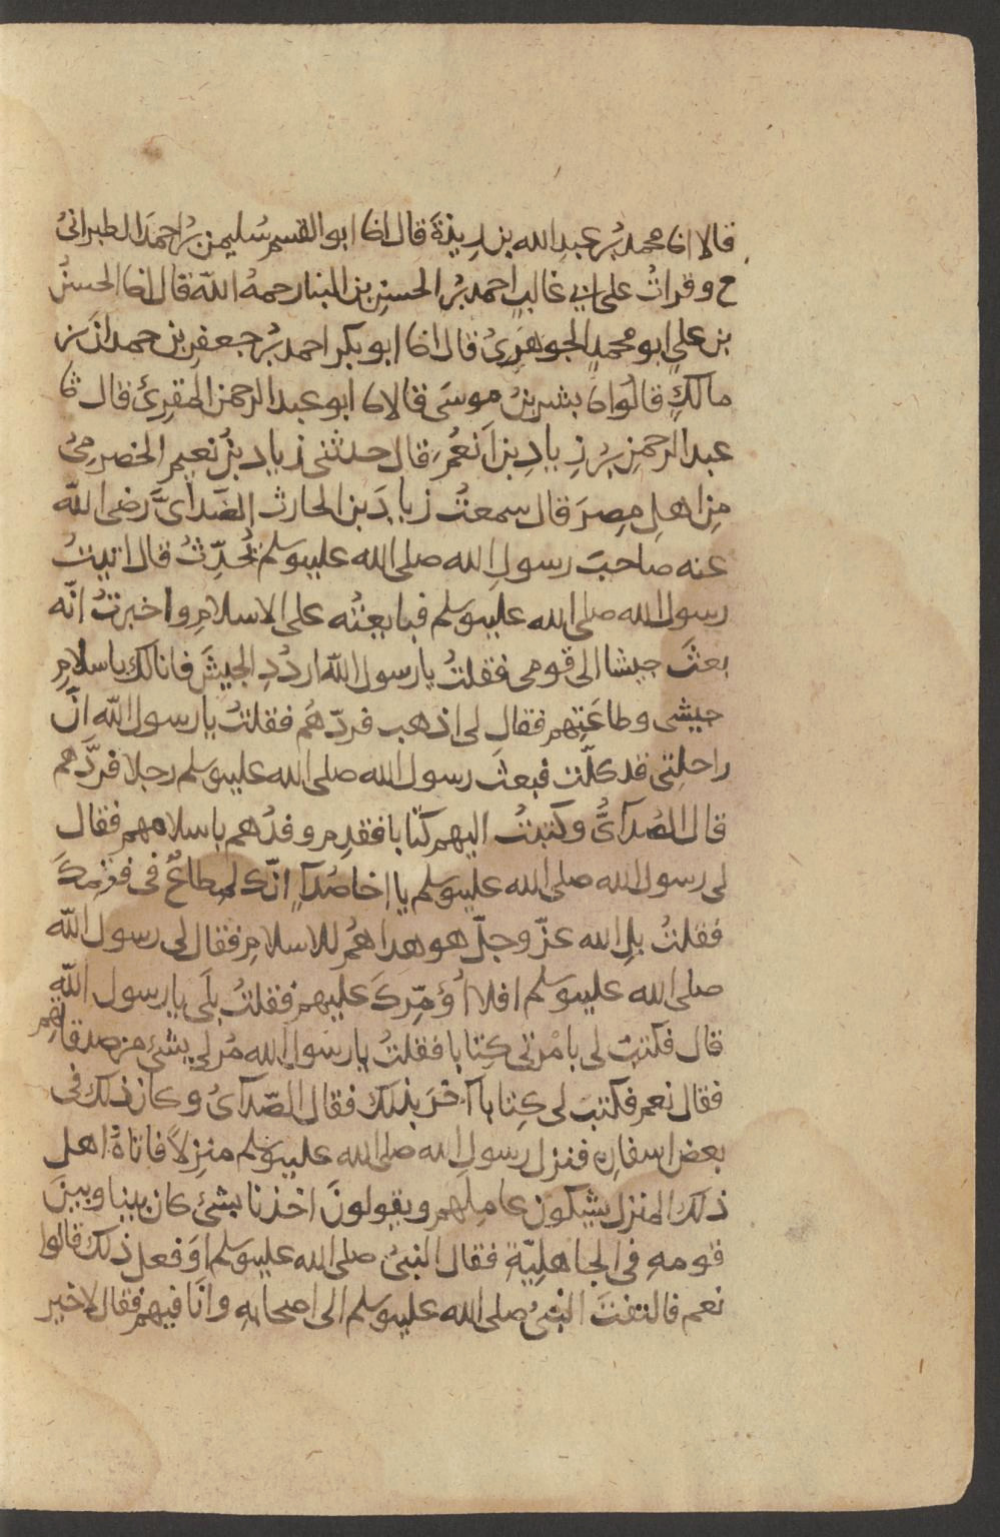 قالا انا محمد بن عبد الله بن ريذة قال انا ابو القسم سليمن بن احمد الطبراني
ح وقرات على ابي غالب احمد بن الحسن بن البنا رحمه الله قال انا الحسن
بن علي ابو محمد الجوهري قال انا ابو بكر احمد بن جعفر بن حمدان بن
مالك قالوا نا بشر بن موسى قال نا ابو عبد الرحمن المقرئ قال ثا
عبد الرحمن بن زياد بن انعم قال حدثني زياد بن نعيم الحضرمي
من اهل مصر قال سمعت زياد بن الحارث الصدائي رضي الله
عنه صاحب رسول الله صلى الله عليه وسلم يحدث قال اتيت
رسول الله صلى الله عليه وسلم فبايعته على الاسلام واخبرت انه
بعث جيشا الى قومي فقلت يا رسول الله اردد الجيش فانا لك باسلام
جيشي وطاعتهم فقال لي اذهب فردهم فقلت يا رسول الله ان
راحلتي قد كلت فبعث رسول الله صلى الله عليه وسلم رجلا فردهم
قال الصدائي وكتبت اليهم كتابا فقدم وفدهم باسلامهم فقال
لي رسول الله صلى الله عليه وسلم يا اخا صدآء انك لمطاع في قومك
فقلت بل الله عز وجل هو هداهم للاسلام فقال لي رسول الله
صلى الله عليه وسلم افلا اؤمرك عليهم فقلت بلى يا رسول الله
قال فكتب لي بامرتي كتابا فقلت يا رسول الله مر لي بشئ من صدقاتهم
فقال نعم فكتب لي كتابا آخر بذلك فقال الصدآئي وكان ذلك في
بعض اسفاره فنزل رسول الله صلى الله عليه وسلم منزلا فاتاه اهل
ذلك المنزل يشكون عاملهم ويقولون اخذنا بشئ كان بيننا وبين
قومه في الجاهلية فقال النبي صلى الله عليه وسلم اوفعل ذلك قالوا
نعم فالتفت النبي صلى الله عليه وسلم الى اصحابه وانا فيهم فقال لا خير